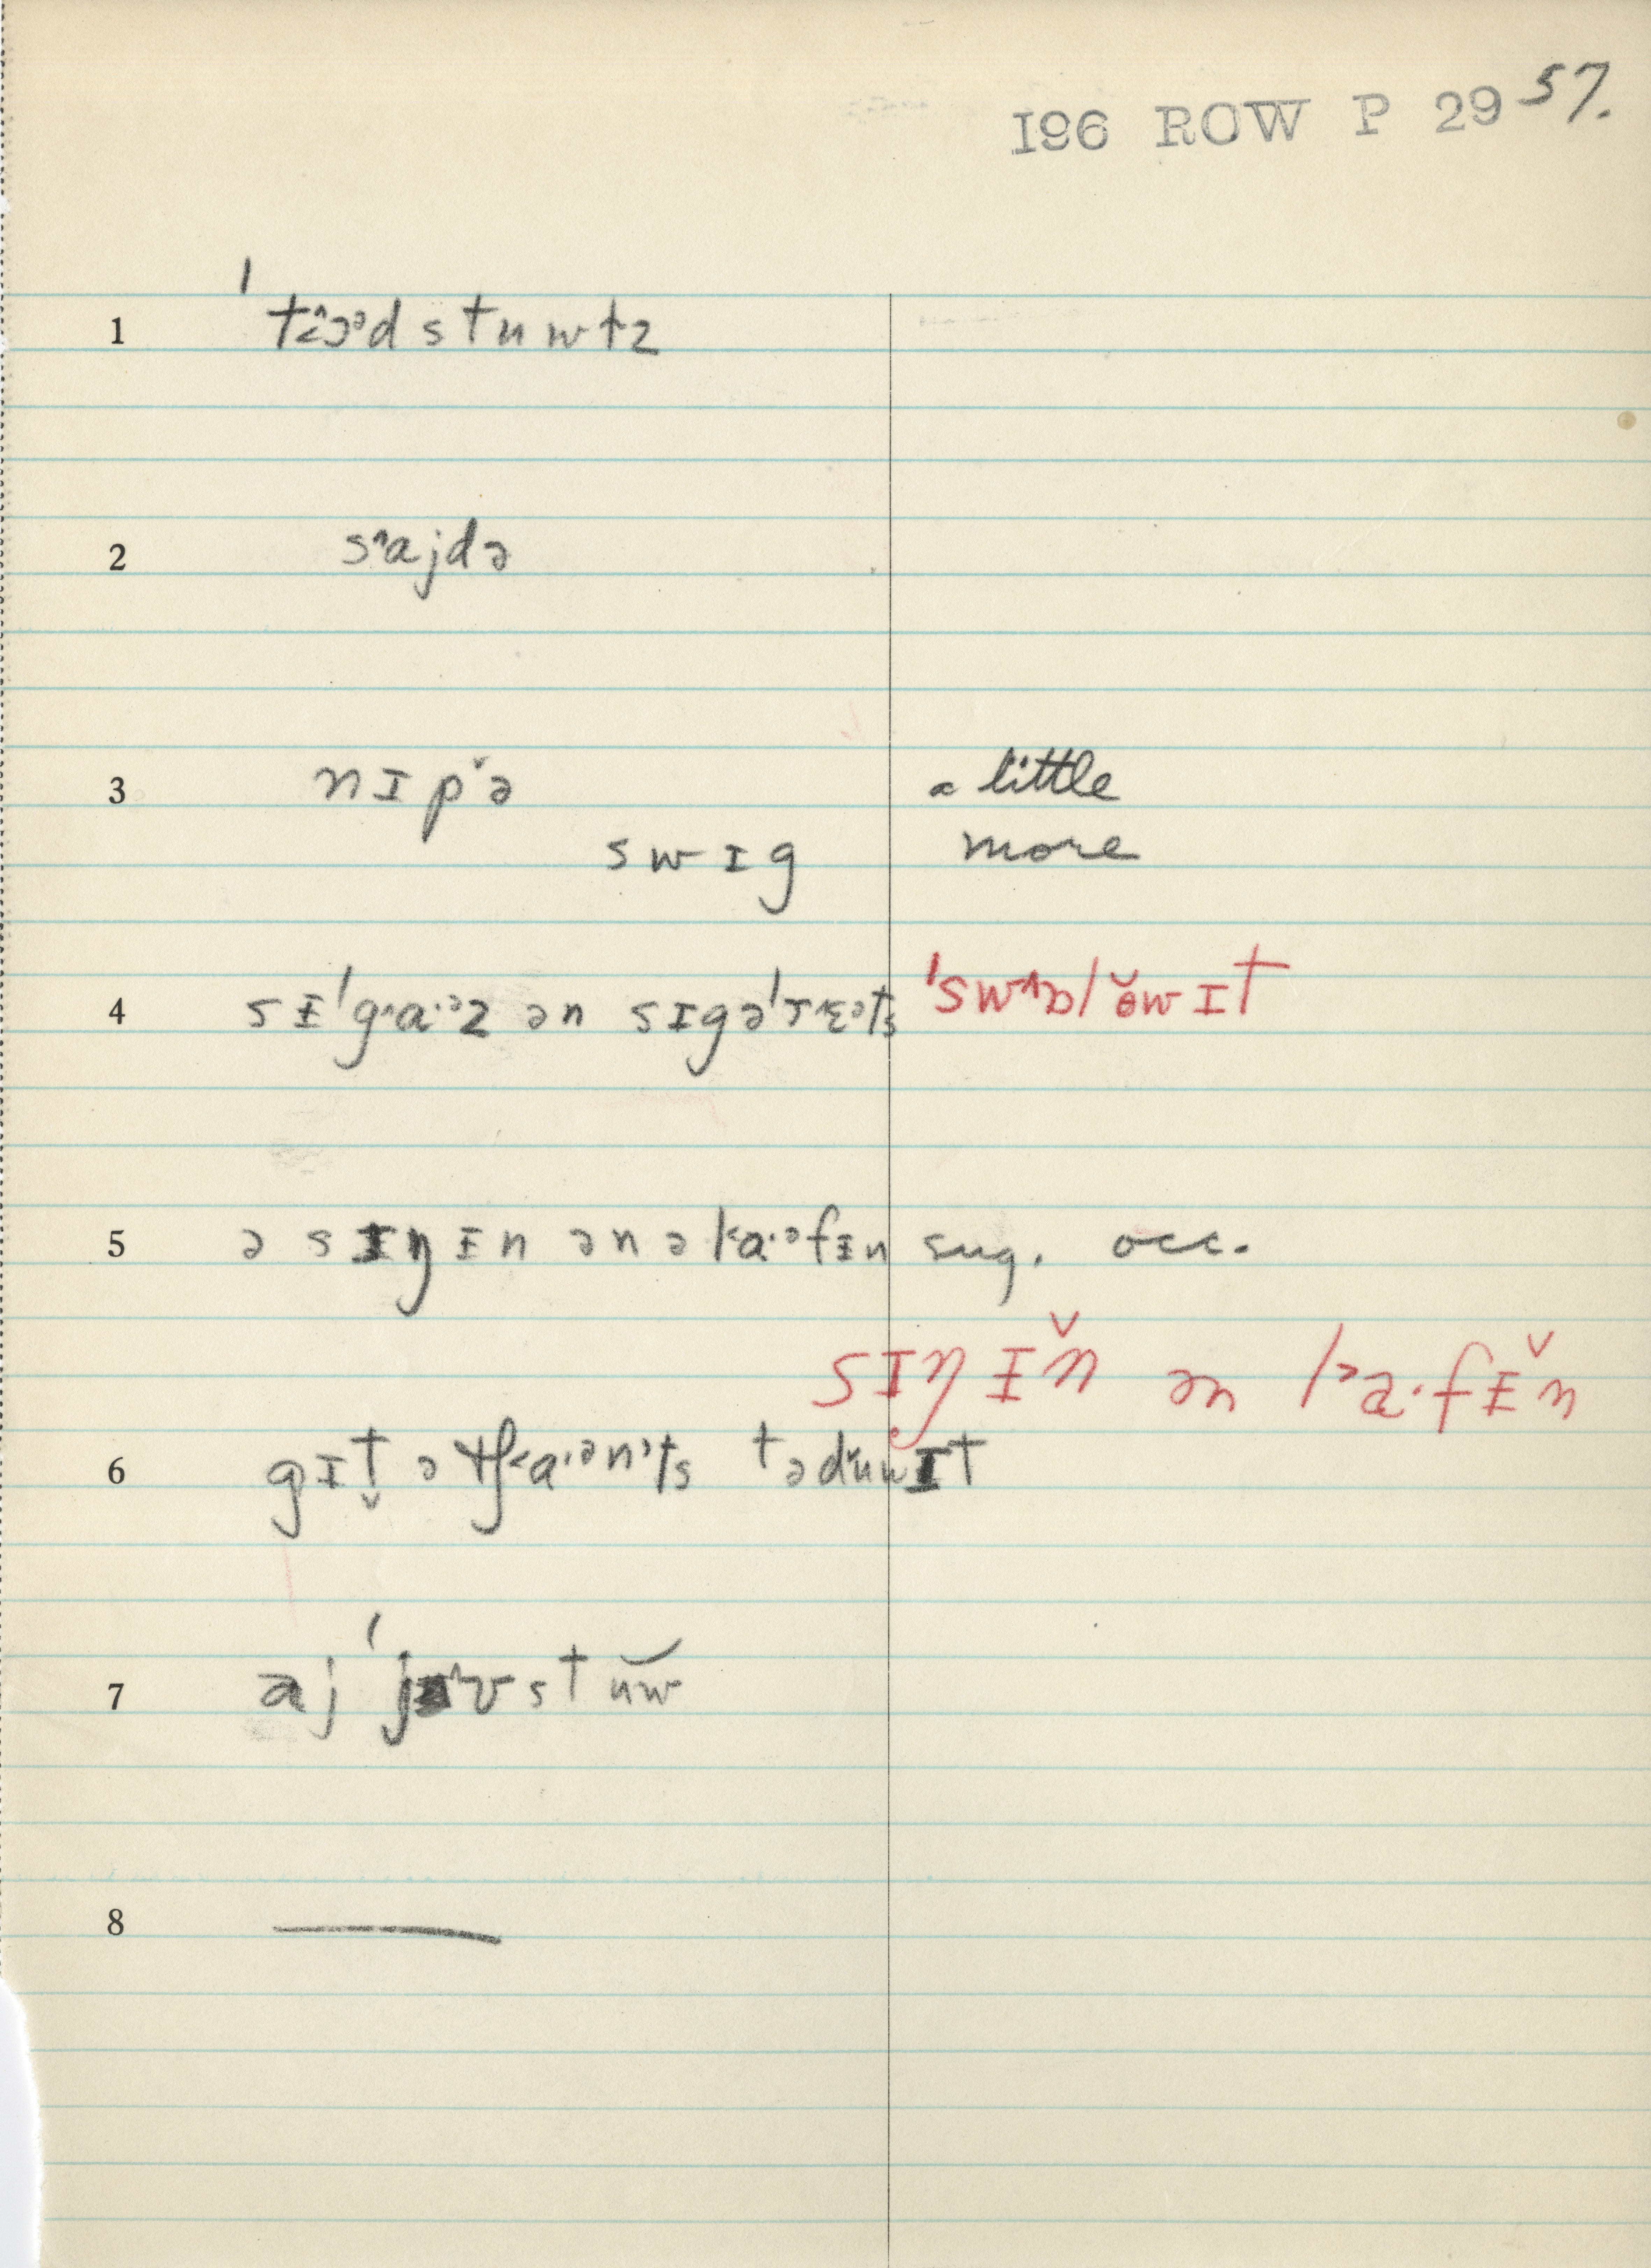 I96 ROW P 29 57.
1 ˈtɔˑədstuwtz
2 sˆajdə
3 nɪpˇə a little
swɪg more
4 sɪˈgˆaˑəz ən sɪgəˈrɛəts ˈswˆɒlɵ̆wɪt
5 ə sɪŋɪn ən ə kaˑəfɪn sug. occ.
sɪŋɪn̆ ən kaˑfɪn̆
6 gɪt̬ ə tʃˆaˑənˈts tədŭwɪt
7 aj ˈjˆvstuw
8